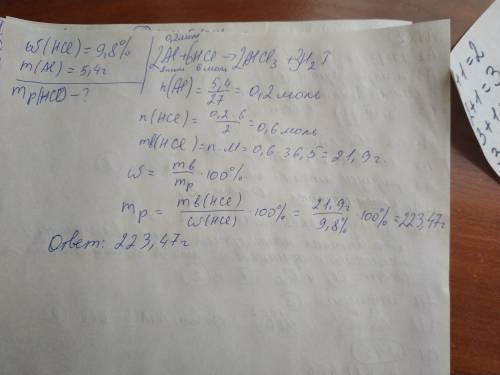 ω(HCl) = 9,8%
m(Al) = 5,4г
mр(HCl) - ?
0,2моль
2Al + 6HCl → 2AlCl₃ + 3H₂↑
2моль 6 моль
n(Al) = 5,4/27 = 0,2 моль
n(HCl) = 0,2·6/2 = 0,6 моль
mв(HCl) = n·M = 0,6·36,5 = 21,9 г.
ω = mв/mр · 100%
mр = mв(HCl)/ω(HCl) · 100% = 21,9г/9,8% · 100% = 223,47г
Ответ: 223,47г
+1=2
+1=3
3+1
3